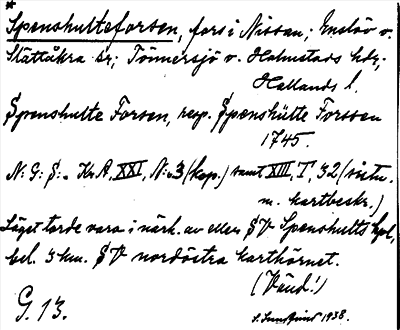 *
Spenshulteforsen, fors i Nissan; Enslöv o.
Slättåkra sr; Tönnersjö o. Halmstads hdr,
Hallands l.
Spenshulte Forsen, resp. Spenshütte Forssen
1745.
N:G:S:. Kr.A. XXI, N:o 3 (kop.) samt XIII, T, 32 (situ.
m. kartbeskr.)
Läget torde vara i närh. av eller SV Spenshults hpl,
bel. 5 km. SV nordöstra karthörnet.
(Vänd!)
G. 13.
1938.